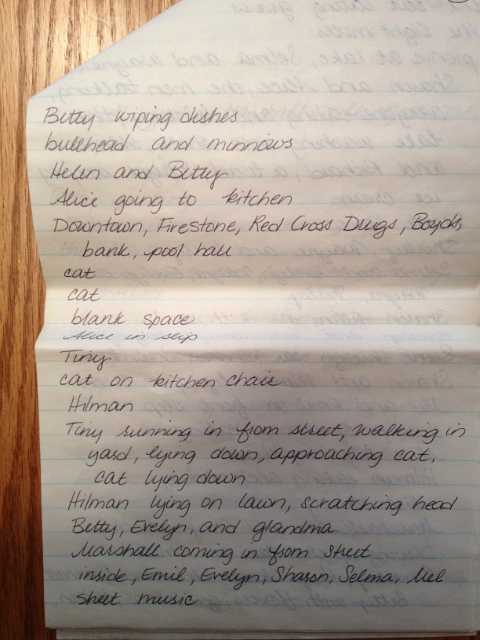 Betty wiping dishes
bullhead and minnows
Helen and Betty
Alice going to kitchen
Downtown, Firestone, Red Cross Drugs, Boyds,
bank, pool hall
cat
cat
blank space
Alice in slip
Tiny
cat on kitchen chair
Hilman
Tiny running in from street, walking in
yard, lying down, approaching cat,
cat lying down
Hilman lying on lawn, scratching head
Betty, Evelyn, and glandma
Marshall coming in from street
inside, Emil, Evelyn, Sharon, Selma, Mel
sheet music